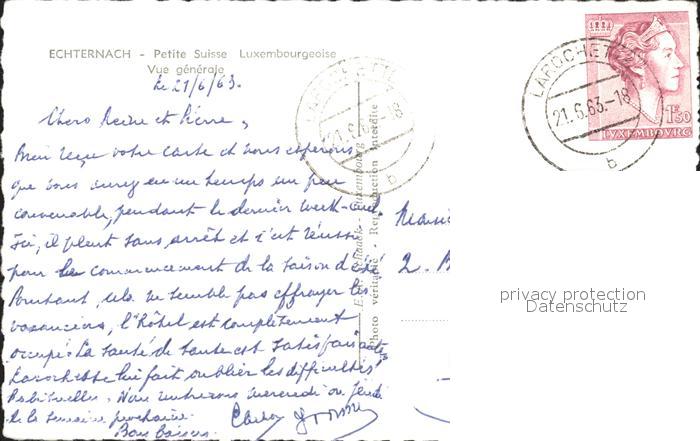 ECHTERNACH - Petite Suisse Luxembourgeoise
Vue générale
le 21/6/63.
Chers Reine et Pierre,
Bien reçu votre carte et nous espérons
que vous avez eu un temps un peu
convenable, pendant le dernier week-end.
Ici, il pleut sans arrêt et c'est réussi
pour le commencement de la saison d'été
Pourtant, cela ne semble pas effrayer les
vacanciers, l'Hôtel est complètement
occupé. La santé de tante est satisfaisante
Larochette lui fait oublier les difficultés
habituelles. Nous rentrerons mercredi ou jeudi
de la semaine prochaine.
Bons baisers.
LAROCHETTE
21.6.63-18
b
Luxembourg
Photo véritable - Reproduction interdite
LAROCHETTE
21.6.63-18
b
1F50
LUXEMBOURG
2.
privacy protection
Datenschutz